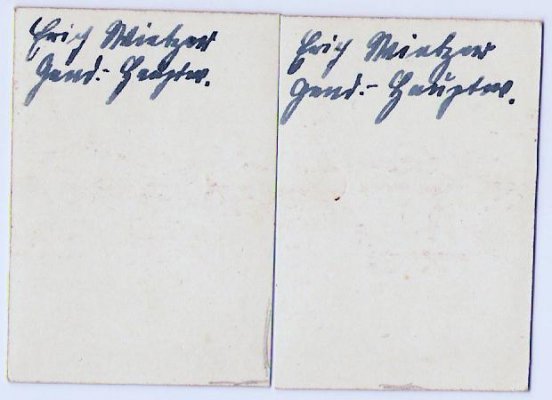 Erich Wietzer
Gend.- Hauptw.
Erich Wietzer
Gend.- Hauptw.